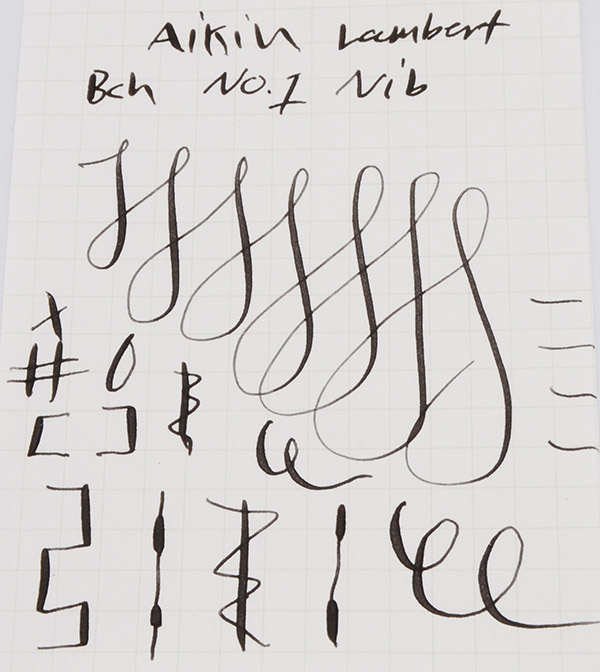 Aikin Lambert
Bch No. 1 Nib